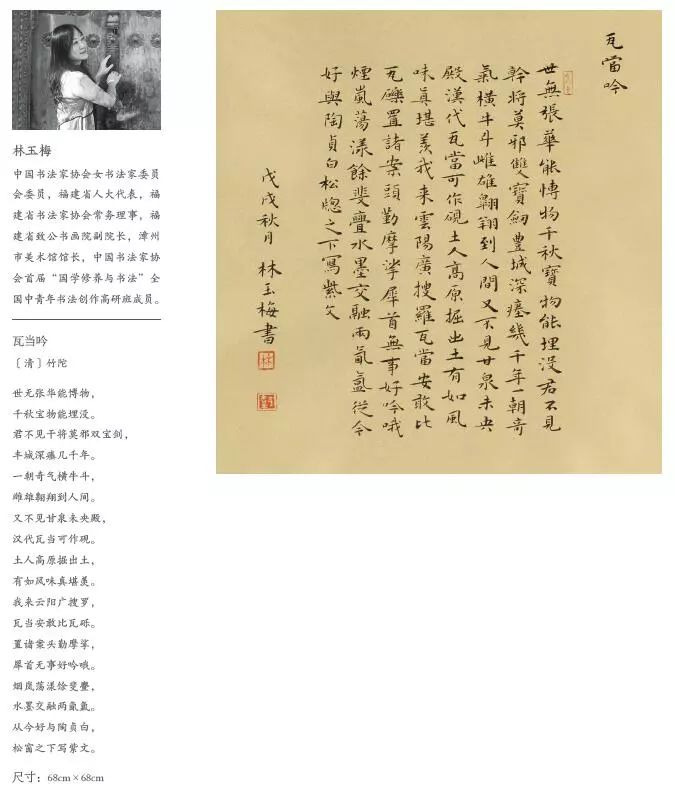 林玉梅
中国书法家协会女书法家委员
会委员，福建省人大代表，福
建省书法家协会常务理事，福
建省致公书画院副院长，漳州
市美术馆馆长，中国书法家协
会首届“国学修养与书法”全
国中青年书法创作高研班成员。
瓦当吟
〔清〕竹陀
世无张华能博物，
千秋宝物能埋没。
君不见干将莫邪双宝剑，
丰城深瘗几千年。
一朝奇气横牛斗，
雌雄翱翔到人间。
又不见甘泉未央殿，
汉代瓦当可作砚。
土人高原掘出土，
有如风味真堪羡。
我来云阳广搜罗，
瓦当安敢比瓦砾。
置诸案头勤摩挲，
犀首无事好吟哦。
烟岚荡漾馀斐亹，
水墨交融两氤氲。
从今好与陶贞白，
松窗之下写紫文。
尺寸：68cm×68cm
瓦當吟
世無張華能博物千秋寶物能埋没君不見
幹將莫邪雙寶劍豐城深瘞幾千年一朝奇
氣橫牛斗雌雄翱翔到人間又不見甘泉未央
殿漢代瓦當可作硯土人高原掘出土有如風
味真堪羨我来雲陽廣搜羅瓦當安敢比
瓦礫置諸案頭勤摩挲犀首無事好吟哦
煙嵐蕩漾餘斐亹水墨交融兩氤氳從今
好與陶貞白松窓之下寫紫文
戊戌秋月 林玉梅書
林